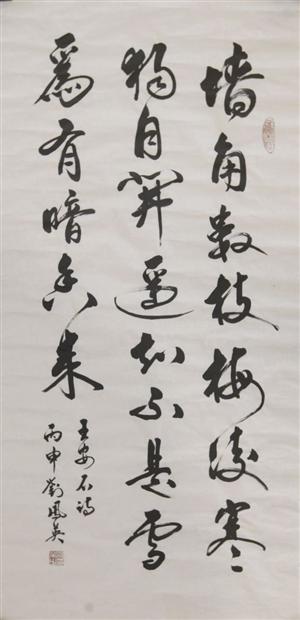 墙角数枝梅凌寒
独自開遥知不是雪
為有暗香来
王安石诗
丙申劉鳳英